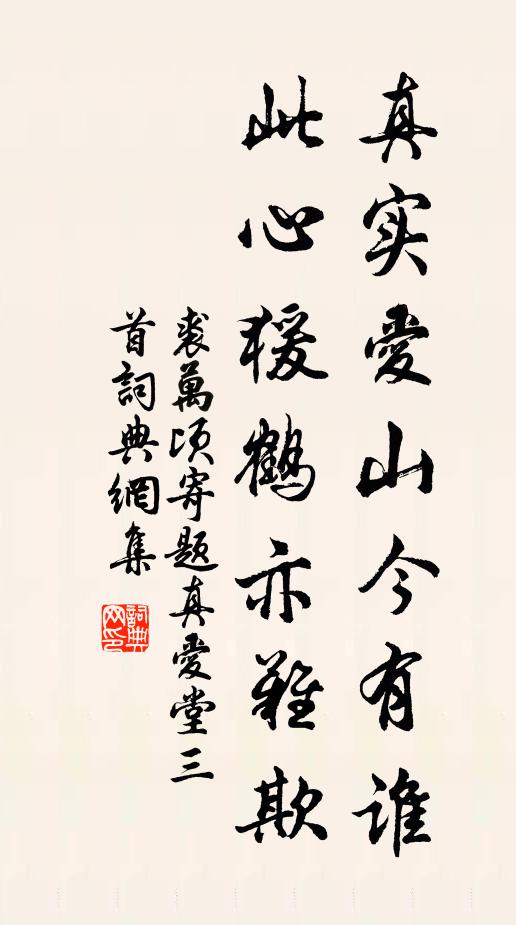 真实愛山今有谁
此心猨鶴亦難欺
裘萬顷寄题真愛堂三
首詞典網集
詞典
网印